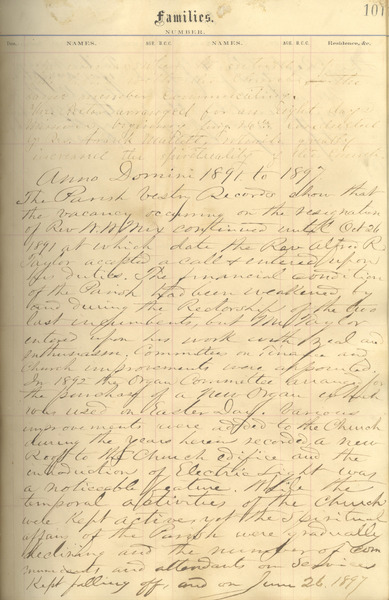 101
Families.
NUMBER.
NAMES. NAMES. Residence, &c.
number communicating.
arranged for an eight day
Mission beginning
increased the spirituality of the
Anno Domini 1891 to 1897
The Parish Vestry Records show that
the vacancy occurring on the resignation
of Rev W. W. Nix continued until Oct 26
1891 at which date the Rev. Alfred R.
Taylor accepted a call & entered upon
his duties. The financial condition
of the Parish had been weakened by
during the Rectorship of the two
last incumbents, but Mr Taylor
entered upon his work with zeal and
enthusiasm. Committees on Finance and
Church improvements were appointed.
In 1892 the Organ Committee arranged for
the purchase of a New Organ which
was used on Easter Day. Various
improvements were added to the Church
during the years herein recorded a new
Roof to the Church Edifice and the
introduction of Electric Light was
a noticeable feature. While the
temporal activities of the Church
were kept active yet the Spiritual
affairs of the Parish were gradually
declining and the number of Com
municants and attendants on Services
kept falling off, and on June 26, 1897